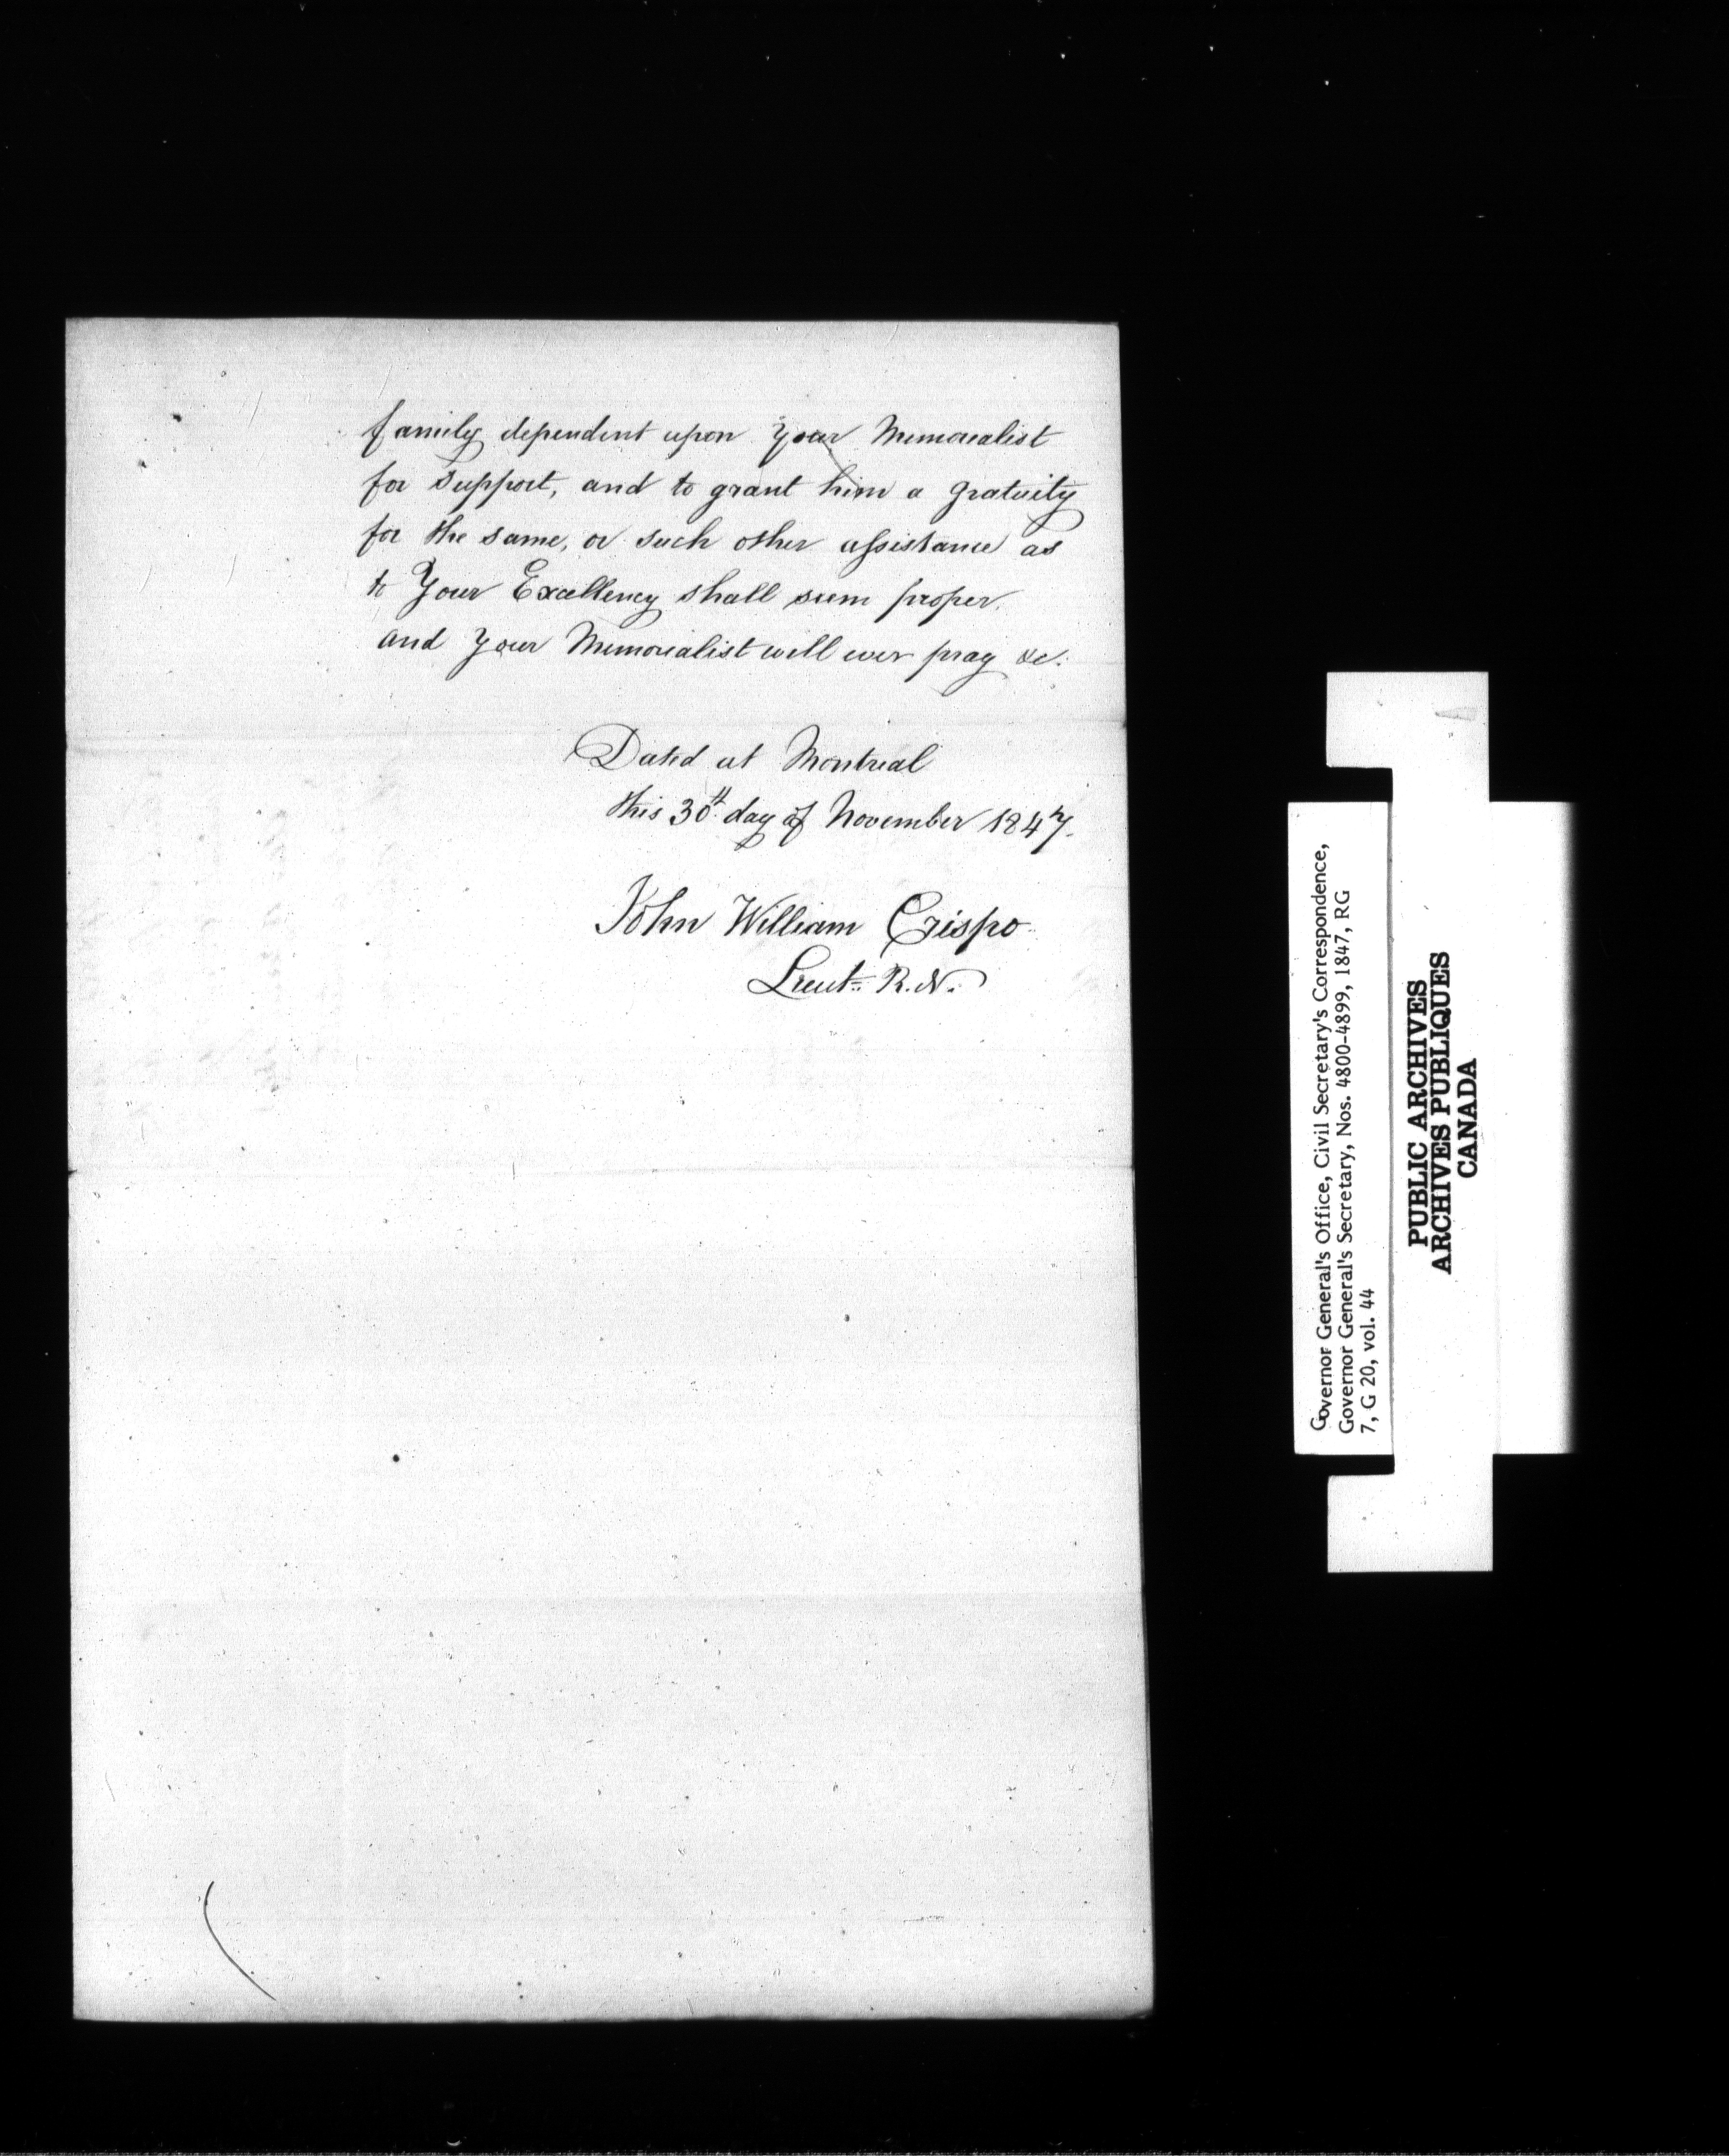 family dependent upon Your Memorialist
for support, and to grant him a gratuity
for the same, or such other assistance as
to Your Excellency shall seem proper.
and Your Memorialist will ever pray &c.
Dated at Montreal
this 30th day of November 1847.
John William Crispo
Lieut. R.N.
Governor General's Office, Civil Secretary's Correspondence,
Governor General's Secretary, Nos. 4800-4899, 1847, RG
7, G 20, vol. 44
PUBLIC ARCHIVES
ARCHIVES PUBLIQUES
CANADA